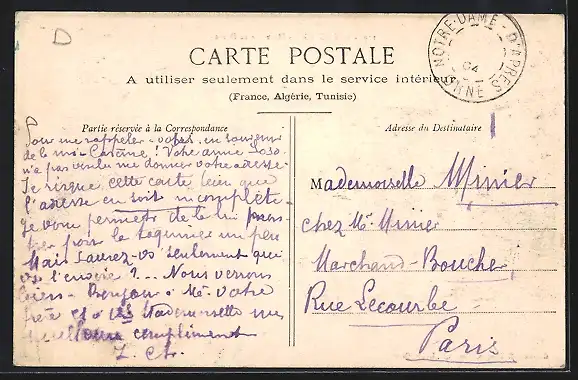 D
NOTRE-DAME-D'APRES
04
CARTE POSTALE
A utiliser seulement dans le service intérieur
(France, Algérie, Tunisie)
Partie réservée à la Correspondance
Adresse du Destinataire
Pour me rappeler - en souvenir
de la mi-Carême! Votre amie
n'a pas voulu me donner votre adresse.
Je risque cette carte bien que
l'adresse en soit incomplète
Je vous permets de la lui
pour la taquiner un peu
Mais saurez-vs seulement qui
vs l'envoie ?... Nous verrons
bien - Bonjour à Mr. votre
et à Mademoiselle mes
compliments
Mademoiselle Minier
chez Mr. Minier
Marchand-Boucher
Rue Lecourbe
Paris